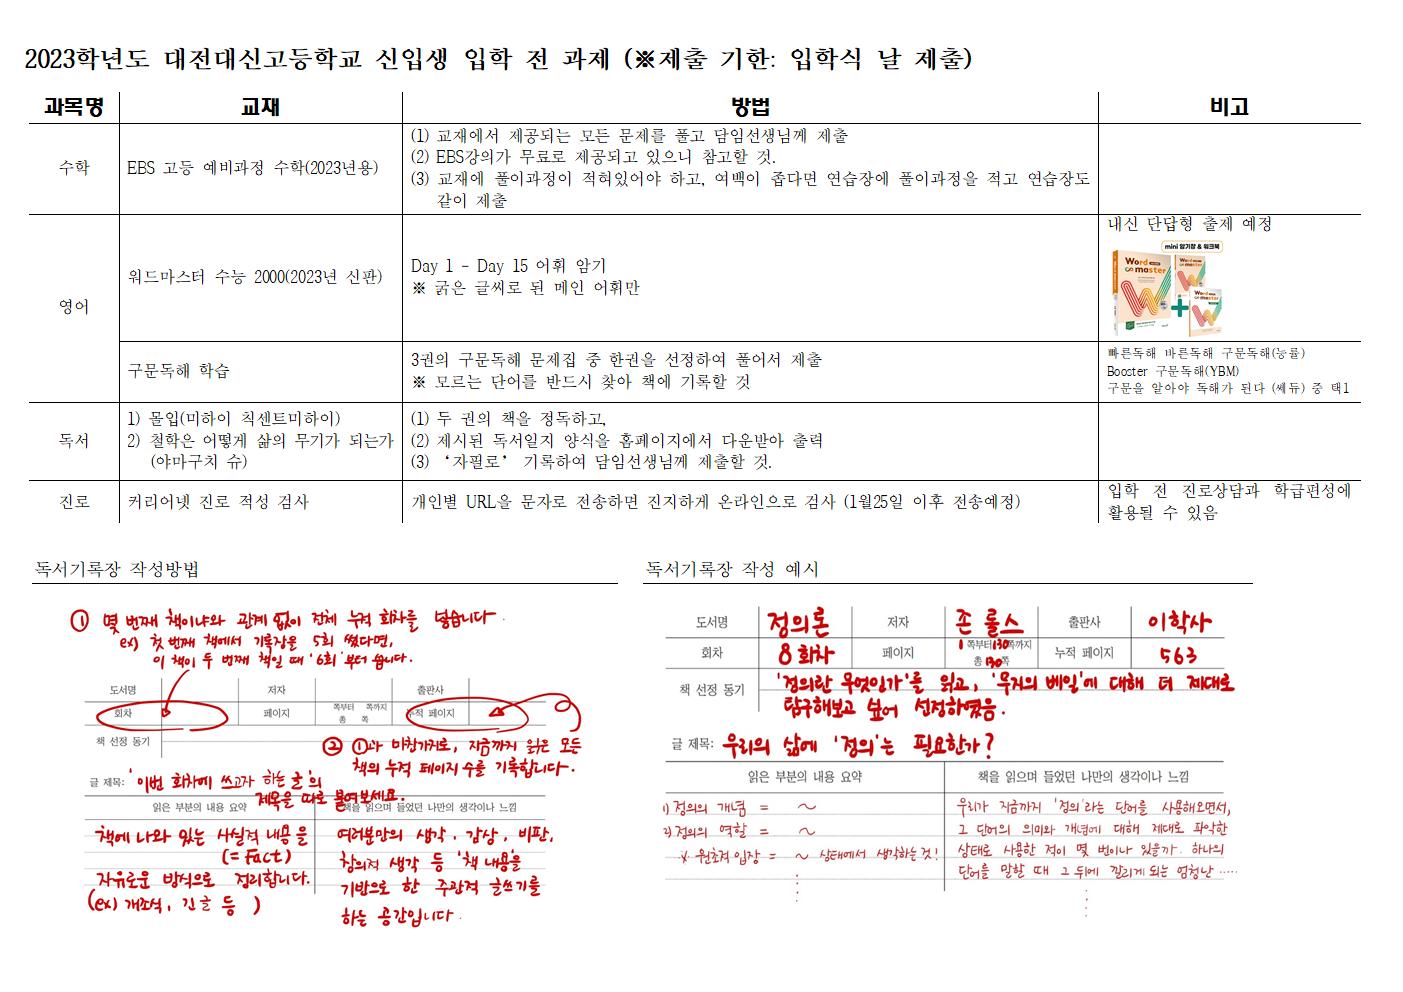 2023학년도 대전대신고등학교 신입생 입학 전 과제 (※제출 기한: 입학식 날 제출)
과목명 교재 방법 비고
수학
EBS 고등 예비과정 수학(2023년용)
(1) 교재에서 제공되는 모든 문제를 풀고 담임선생님께 제출
(2) EBS강의가 무료로 제공되고 있으니 참고할 것.
(3) 교재에 풀이과정이 적혀있어야 하고, 여백이 좁다면 연습장에 풀이과정을 적고 연습장도
같이 제출
영어
워드마스터 수능 2000(2023년 신판)
Day 1 - Day 15 어휘 암기
※ 굵은 글씨로 된 메인 어휘만
내신 단답형 출제 예정
mini 암기장 & 워크북
Word master
Word master
Word master
구문독해 학습
3권의 구문독해 문제집 중 한권을 선정하여 풀어서 제출
※ 모르는 단어를 반드시 찾아 책에 기록할 것
빠른독해 바른독해 구문독해(능률)
Booster 구문독해(YBM)
구문을 알아야 독해가 된다 (쎄듀) 중 택1
독서
1) 몰입(미하이 칙센트미하이)
2) 철학은 어떻게 삶의 무기가 되는가
(야마구치 슈)
(1) 두 권의 책을 정독하고,
(2) 제시된 독서일지 양식을 홈페이지에서 다운받아 출력
(3) ‘자필로’ 기록하여 담임선생님께 제출할 것.
진로
커리어넷 진로 적성 검사
개인별 URL을 문자로 전송하면 진지하게 온라인으로 검사 (1월25일 이후 전송예정)
입학 전 진로상담과 학급편성에
활용될 수 있음
독서기록장 작성방법
① 몇 번째 책이냐와 관계 없이 전체 누적 회차를 넣습니다.
ex) 첫 번째 책에서 기록장을 5회 썼다면,
이 책이 두 번째 책일 때 '6회'부터 씁니다.
도서명 저자 출판사
회차 페이지 쪽부터 쪽까지 누적 페이지
총 쪽
책 선정 동기
② ①과 마찬가지로, 지금까지 읽은 모든
책의 누적 페이지 수를 기록합니다.
글 제목: '이번 회차에 쓰고자 하는 글'의
제목을 따로 붙여보세요.
읽은 부분의 내용 요약 책을 읽으며 들었던 나만의 생각이나 느낌
책에 나와 있는 사실적 내용을
(= Fact)
자유로운 방식으로 정리합니다.
(ex) 개조식, 긴 글 등 )
여러분만의 생각, 감상, 비판,
창의적 생각 등 '책 내용'을
기반으로 한 주관적 글쓰기를
하는 공간입니다.
독서기록장 작성 예시
도서명 정의론 저자 존 롤스 출판사 이학사
회차 8회차 페이지 1쪽부터 130쪽까지 누적 페이지 563
총 130쪽
책 선정 동기 '정의란 무엇인가'를 읽고, '무지의 베일'에 대해 더 제대로
탐구해보고 싶어 선정하였음.
글 제목: 우리의 삶에 '정의'는 필요한가?
읽은 부분의 내용 요약 책을 읽으며 들었던 나만의 생각이나 느낌
1) 정의의 개념 = ~
2) 정의의 역할 = ~
※ 원초적 입장 = ~ 상태에서 생각하는 것!
우리가 지금까지 '정의'라는 단어를 사용해오면서,
그 단어의 의미와 개념에 대해 제대로 파악한
상태로 사용한 적이 몇 번이나 있을까. 하나의
단어를 말할 때 그 뒤에 깔리게 되는 엄청난 .....